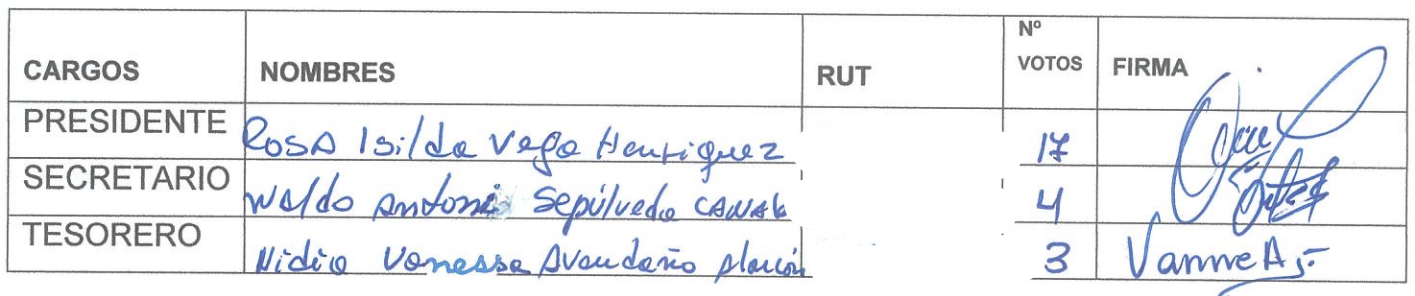 CARGOS NOMBRES RUT Nº VOTOS FIRMA
PRESIDENTE Rosa Isilda Vega Henriquez 17
SECRETARIO Waldo Antonio Sepúlveda 4
TESORERO Nidia Vanessa Avendaño Alarcón 3 Vanne A